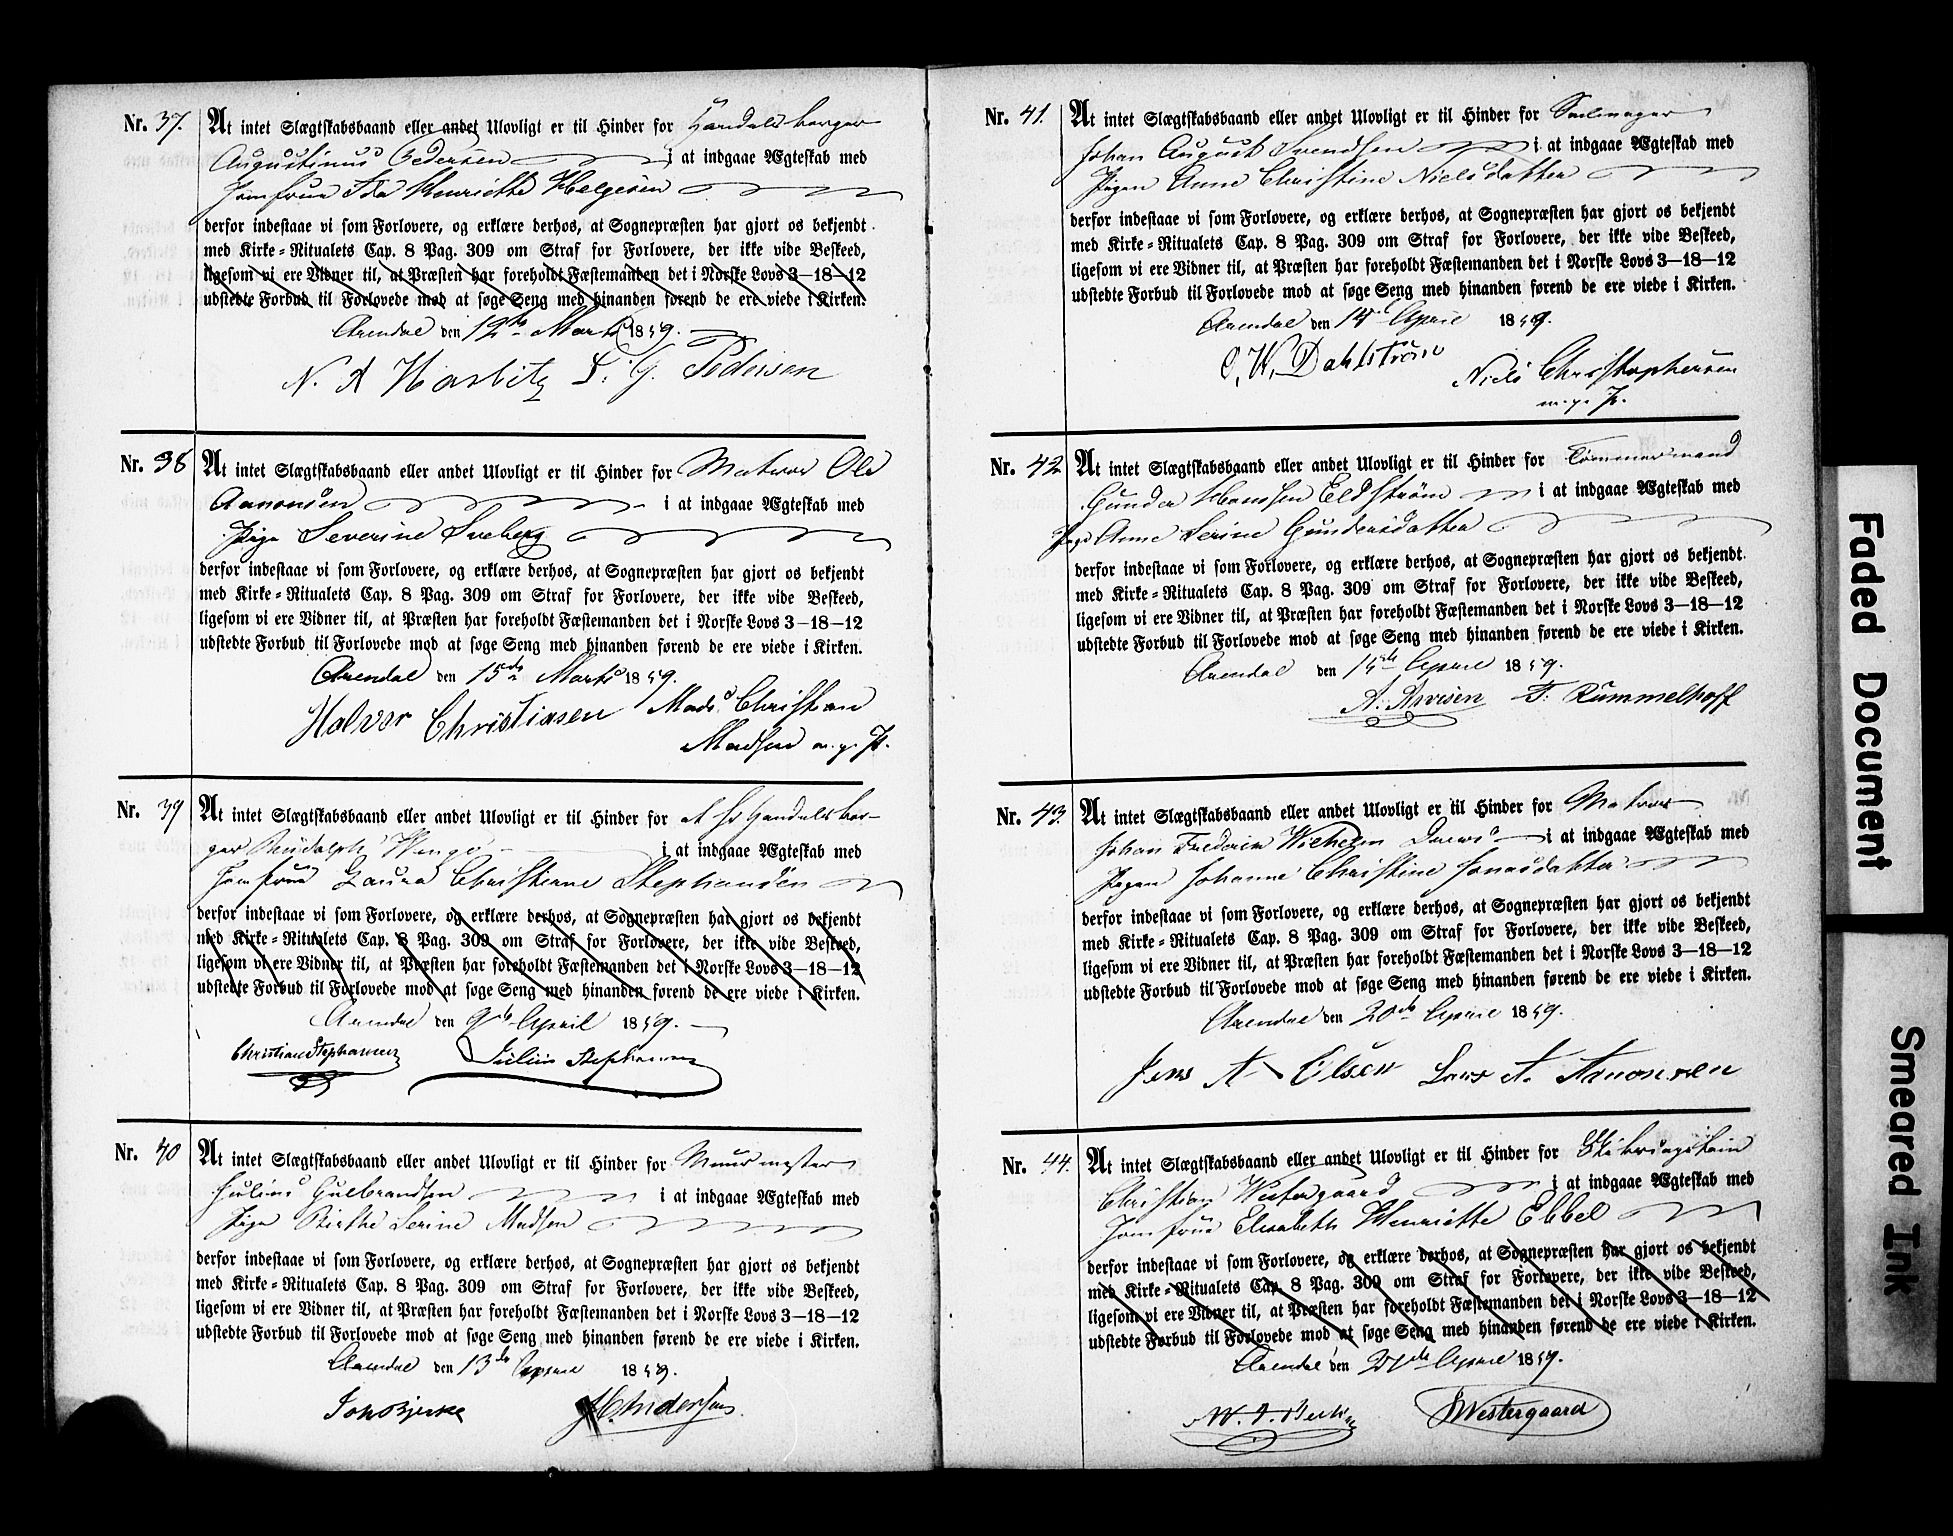 Nr. 37. At intet Slægtskabsbaand eller andet Ulovligt er til Hinder for Handelsborger
Augustinus Pedersen i at indgaae Ægteskab med
Jomfrue Ida Henriette Helgesen
derfor indestaae vi som Forlovere, og erklære derhos, at Sognepræsten har gjort os bekjendt
med Kirke-Ritualets Cap. 8 Pag. 309 om Straf for Forlovere, der ikke vide Beskeed,
ligesom vi ere Vidner til, at Præsten har foreholdt Fæstemanden det i Norske Lovs 3-18-12
udstedte Forbud til Forlovede mod at søge Seng med hinanden førend de ere viede i Kirken.
Arendal den 12te Marts 1859.
N. A Haslitz S. G. Pedersen
Nr. 38 At intet Slægtskabsbaand eller andet Ulovligt er til Hinder for Matros Ole
Aanonsen i at indgaae Ægteskab med
Pige Severine Sveberg
derfor indestaae vi som Forlovere, og erklære derhos, at Sognepræsten har gjort os bekjendt
med Kirke-Ritualets Cap. 8 Pag. 309 om Straf for Forlovere, der ikke vide Beskeed,
ligesom vi ere Vidner til, at Præsten har foreholdt Fæstemanden det i Norske Lovs 3-18-12
udstedte Forbud til Forlovede mod at søge Seng med hinanden førend de ere viede i Kirken.
Arendal den 15de Marts 1859.
Halvor Christiasen Mads Christian
Madsen m. p. P.
Nr. 39 At intet Slægtskabsbaand eller andet Ulovligt er til Hinder for Handelsbor-
ger Rudolph i at indgaae Ægteskab med
Jomfrue Laura Christiane Stephansen
derfor indestaae vi som Forlovere, og erklære derhos, at Sognepræsten har gjort os bekjendt
med Kirke-Ritualets Cap. 8 Pag. 309 om Straf for Forlovere, der ikke vide Beskeed,
ligesom vi ere Vidner til, at Præsten har foreholdt Fæstemanden det i Norske Lovs 3-18-12
udstedte Forbud til Forlovede mod at søge Seng med hinanden førend de ere viede i Kirken.
Arendal den 9de April 1859.
Christian Stephansen Julius Stephansen
Nr. 40 At intet Slægtskabsbaand eller andet Ulovligt er til Hinder for Muurmester
Julius Gulbrandsen i at indgaae Ægteskab med
Pige Birthe Serine Madsen
derfor indestaae vi som Forlovere, og erklære derhos, at Sognepræsten har gjort os bekjendt
med Kirke-Ritualets Cap. 8 Pag. 309 om Straf for Forlovere, der ikke vide Beskeed,
ligesom vi ere Vidner til, at Præsten har foreholdt Fæstemanden det i Norske Lovs 3-18-12
udstedte Forbud til Forlovede mod at søge Seng med hinanden førend de ere viede i Kirken.
Arendal den 13de April 1859.
Joh Bjerke Andersen
Nr. 41. At intet Slægtskabsbaand eller andet Ulovligt er til Hinder for Seilmager
Johan August Svendsen i at indgaae Ægteskab med
Pigen Anne Christine Nielsdatter
derfor indestaae vi som Forlovere, og erklære derhos, at Sognepræsten har gjort os bekjendt
med Kirke-Ritualets Cap. 8 Pag. 309 om Straf for Forlovere, der ikke vide Beskeed,
ligesom vi ere Vidner til, at Præsten har foreholdt Fæstemanden det i Norske Lovs 3-18-12
udstedte Forbud til Forlovede mod at søge Seng med hinanden førend de ere viede i Kirken.
Arendal den 14de April 1859.
C. W. Dahlstrøm Niels Christophersen
m. p. P.
Nr. 42 At intet Slægtskabsbaand eller andet Ulovligt er til Hinder for Tømmermand
Gunder Hansen Eldstrøm i at indgaae Ægteskab med
Pige Anne Serine Gundersdatter
derfor indestaae vi som Forlovere, og erklære derhos, at Sognepræsten har gjort os bekjendt
med Kirke-Ritualets Cap. 8 Pag. 309 om Straf for Forlovere, der ikke vide Beskeed,
ligesom vi ere Vidner til, at Præsten har foreholdt Fæstemanden det i Norske Lovs 3-18-12
udstedte Forbud til Forlovede mod at søge Seng med hinanden førend de ere viede i Kirken.
Arendal den 14de April 1859.
A. Arvesen F. Rummelhoff
Nr. 43. At intet Slægtskabsbaand eller andet Ulovligt er til Hinder for Matros
Johan Frederik Wilhelm i at indgaae Ægteskab med
Pigen Johanne Christine Jonasdatter
derfor indestaae vi som Forlovere, og erklære derhos, at Sognepræsten har gjort os bekjendt
med Kirke-Ritualets Cap. 8 Pag. 309 om Straf for Forlovere, der ikke vide Beskeed,
ligesom vi ere Vidner til, at Præsten har foreholdt Fæstemanden det i Norske Lovs 3-18-12
udstedte Forbud til Forlovede mod at søge Seng med hinanden førend de ere viede i Kirken.
Arendal den 20de April 1859.
Jens A. Olsen Lars A. Aanonsen
Nr. 44. At intet Slægtskabsbaand eller andet Ulovligt er til Hinder for
Christian Westergaard i at indgaae Ægteskab med
Jomfrue Elisabeth Henriette Ebbel
derfor indestaae vi som Forlovere, og erklære derhos, at Sognepræsten har gjort os bekjendt
med Kirke-Ritualets Cap. 8 Pag. 309 om Straf for Forlovere, der ikke vide Beskeed,
ligesom vi ere Vidner til, at Præsten har foreholdt Fæstemanden det i Norske Lovs 3-18-12
udstedte Forbud til Forlovede mod at søge Seng med hinanden førend de ere viede i Kirken.
Arendal den 27de April 1859.
Westergaard
Faded Document
Smeared Ink